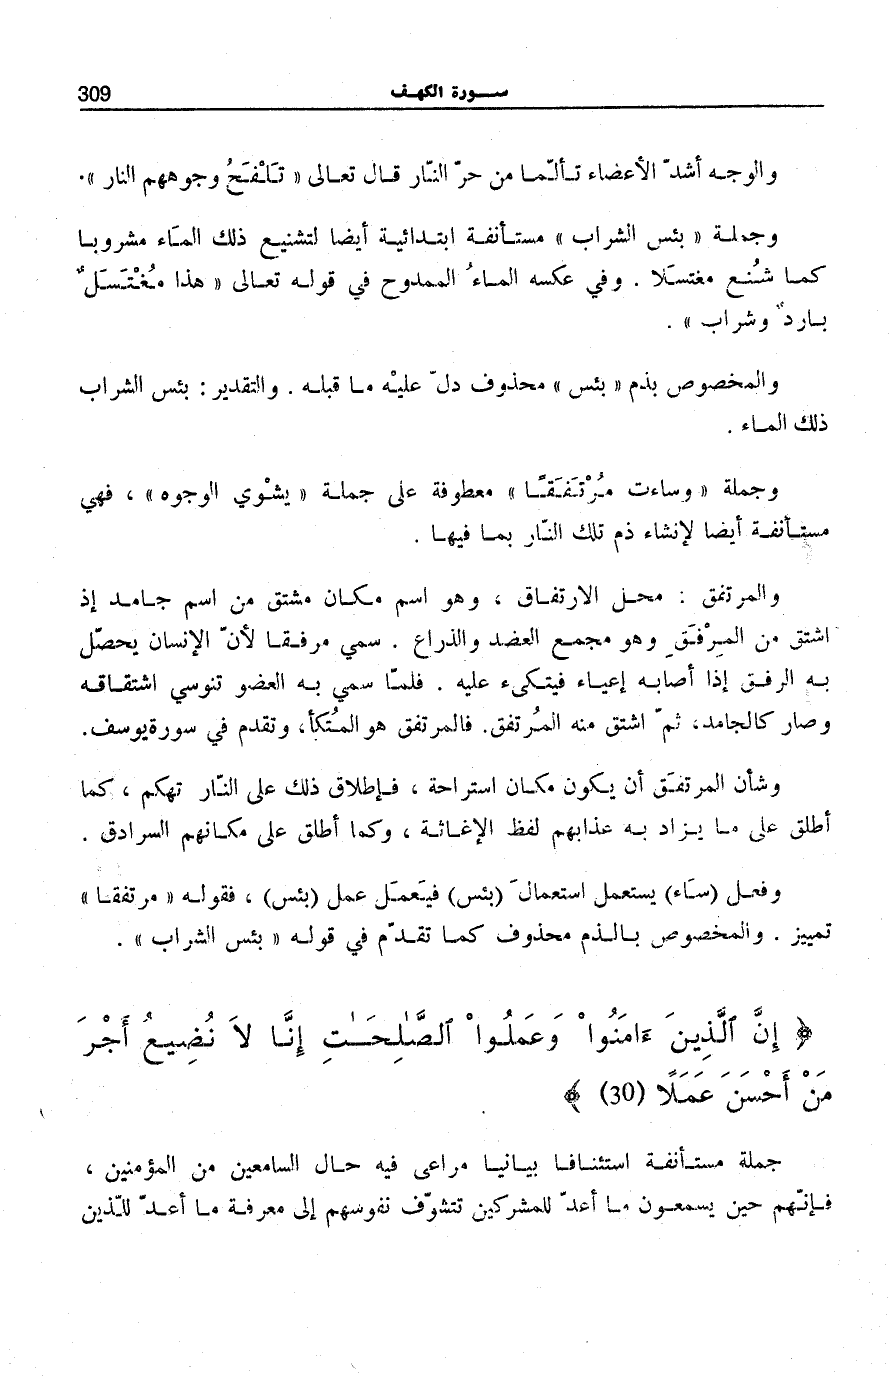 سورة الكهف 309
والوجه أشدّ الأعضاء تألّما من حرّ النّار قال تعالى « تَلْفَحُ وجوههم النار ».
وجملة « بئس الشراب » مستأنفة ابتدائية أيضا لتشنيع ذلك الماء مشروبا
كما شُنع مغتسَلا . وفي عكسه الماءُ الممدوح في قوله تعالى « هذا مُغْتَسَلٌ
باردٌ وشراب » .
والمخصوص بذم « بئس » محذوف دلّ عليْه ما قبله . والتقدير : بئس الشراب
ذلك الماء .
وجملة « وساءت مُرْتَفَقًا » معطوفة على جملة « يشْوي الوجوه » ، فهي
مستأنفة أيضا لإنشاء ذم تلك النّار بما فيها .
والمرتفق : محل الارتفاق ، وهو اسم مكان مشتق من اسم جامد إذ
اشتق من المِرْفَقِ وهو مجمع العضد والذراع . سمي مرفقا لأنّ الإنسان يحصّل
به الرفق إذا أصابه إعياء فيتكىء عليه . فلمّا سمي به العضو تنوسي اشتقاقه
وصار كالجامد، ثمّ اشتق منه المُرتفق. فالمرتفق هو المُتكأ، وتقدم في سورة يوسف.
وشأن المرتفَق أن يكون مكان استراحة ، فإطلاق ذلك على النّار تهكم ، كما
أطلق على ما يزاد به عذابهم لفظ الإغاثة ، وكما أطلق على مكانهم السرادق .
وفعل (سَاء) يستعمل استعمالَ (بئس) فيَعمَل عمل (بئس) ، فقوله « مرتفقا »
تمييز . والمخصوص بالذم محذوف كما تقدّم في قوله « بئس الشراب » .
﴿ إِنَّ ٱلَّذِينَ ءَامَنُواْ وَعَمِلُواْ ٱلصَّٰلِحَٰتِ إِنَّا لَا نُضِيعُ أَجْرَ
مَنْ أَحْسَنَ عَمَلًا (30) ﴾
جملة مستأنفة استئنافا بيانيا مراعى فيه حال السامعين من المؤمنين ،
فإنّهم حين يسمعون ما أعدّ للمشركين تتشوّف نفوسهم إلى معرفة ما أعدّ للّذين